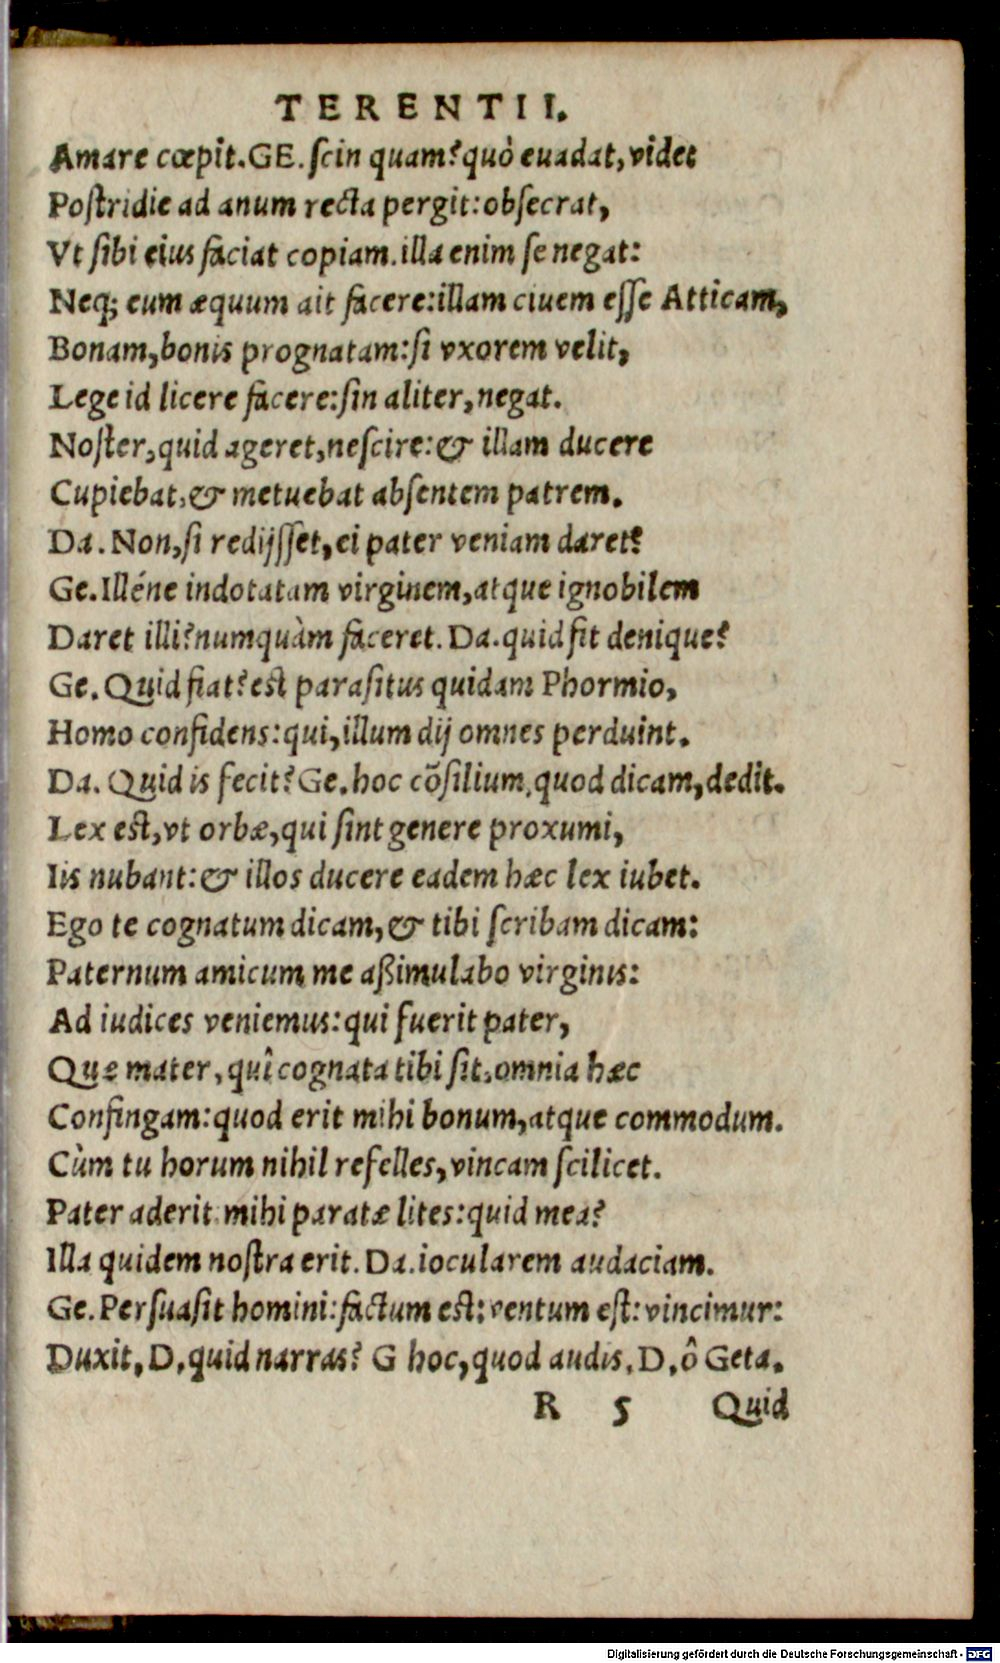 TERENTII.
Amare cœpit. GE. ſcin quam? quò euadat, vide:
Poſtridie ad anum recta pergit: obſecrat,
Vt ſibi eius faciat copiam. illa enim ſe negat:
Neq; eum æquum ait facere: illam ciuem eſſe Atticam,
Bonam, bonis prognatam: ſi vxorem velit,
Lege id licere facere: ſin aliter, negat.
Noſter, quid ageret, neſcire: & illam ducere
Cupiebat, & metuebat abſentem patrem.
Da. Non, ſi redijſſet, ei pater veniam daret?
Ge. Illéne indotatam virginem, atque ignobilem
Daret illi? numquàm faceret. Da. quid fit denique?
Ge. Quid fiat? eſt paraſitus quidam Phormio,
Homo confidens: qui, illum dij omnes perduint.
Da. Quid is fecit? Ge. hoc cõſilium, quod dicam, dedit.
Lex eſt, vt orbæ, qui ſint genere proxumi,
Iis nubant: & illos ducere eadem hæc lex iubet.
Ego te cognatum dicam, & tibi ſcribam dicam:
Paternum amicum me aßimulabo virginis:
Ad iudices veniemus: qui fuerit pater,
Quæ mater, quî cognata tibi ſit, omnia hæc
Confingam: quod erit mihi bonum, atque commodum.
Cùm tu horum nihil refelles, vincam ſcilicet.
Pater aderit. mihi paratæ lites: quid mea?
Illa quidem noſtra erit. Da. iocularem audaciam.
Ge. Perſuaſit homini: factum eſt: ventum eſt: vincimur:
Duxit, D. quid narras? G hoc, quod audis. D. ô Geta.
R 5 Quid
Digitalisierung gefördert durch die Deutsche Forschungsgemeinschaft - DFG